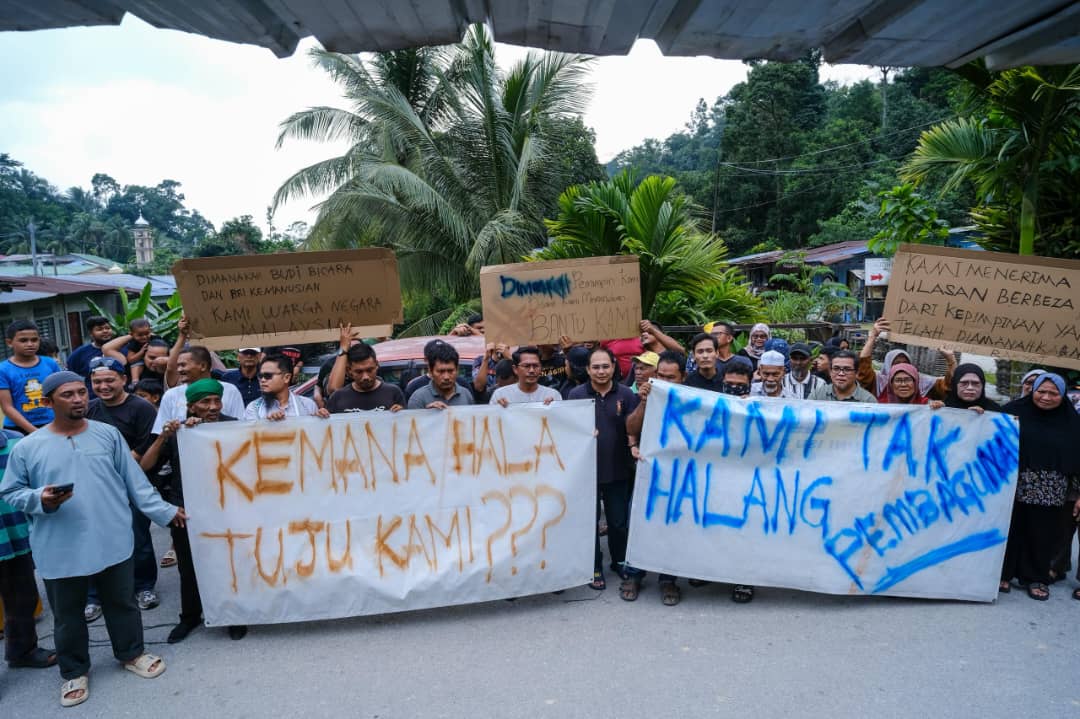 DIMANAKAH BUDI BICARA
DAN PRI KEMANUSIAN
KAMI WARGA NEGARA
MALAYSIA
DIMANAKAH
KAMI
BANTU KAMI
KAMI MENERIMA
ULASAN BERBEZA
DARI KEPIMPINAN YA
TELAH DIAMANAHK
KEMANA HALA
TUJU KAMI???
KAMI TAK
HALANG
PEMBAGUNAN